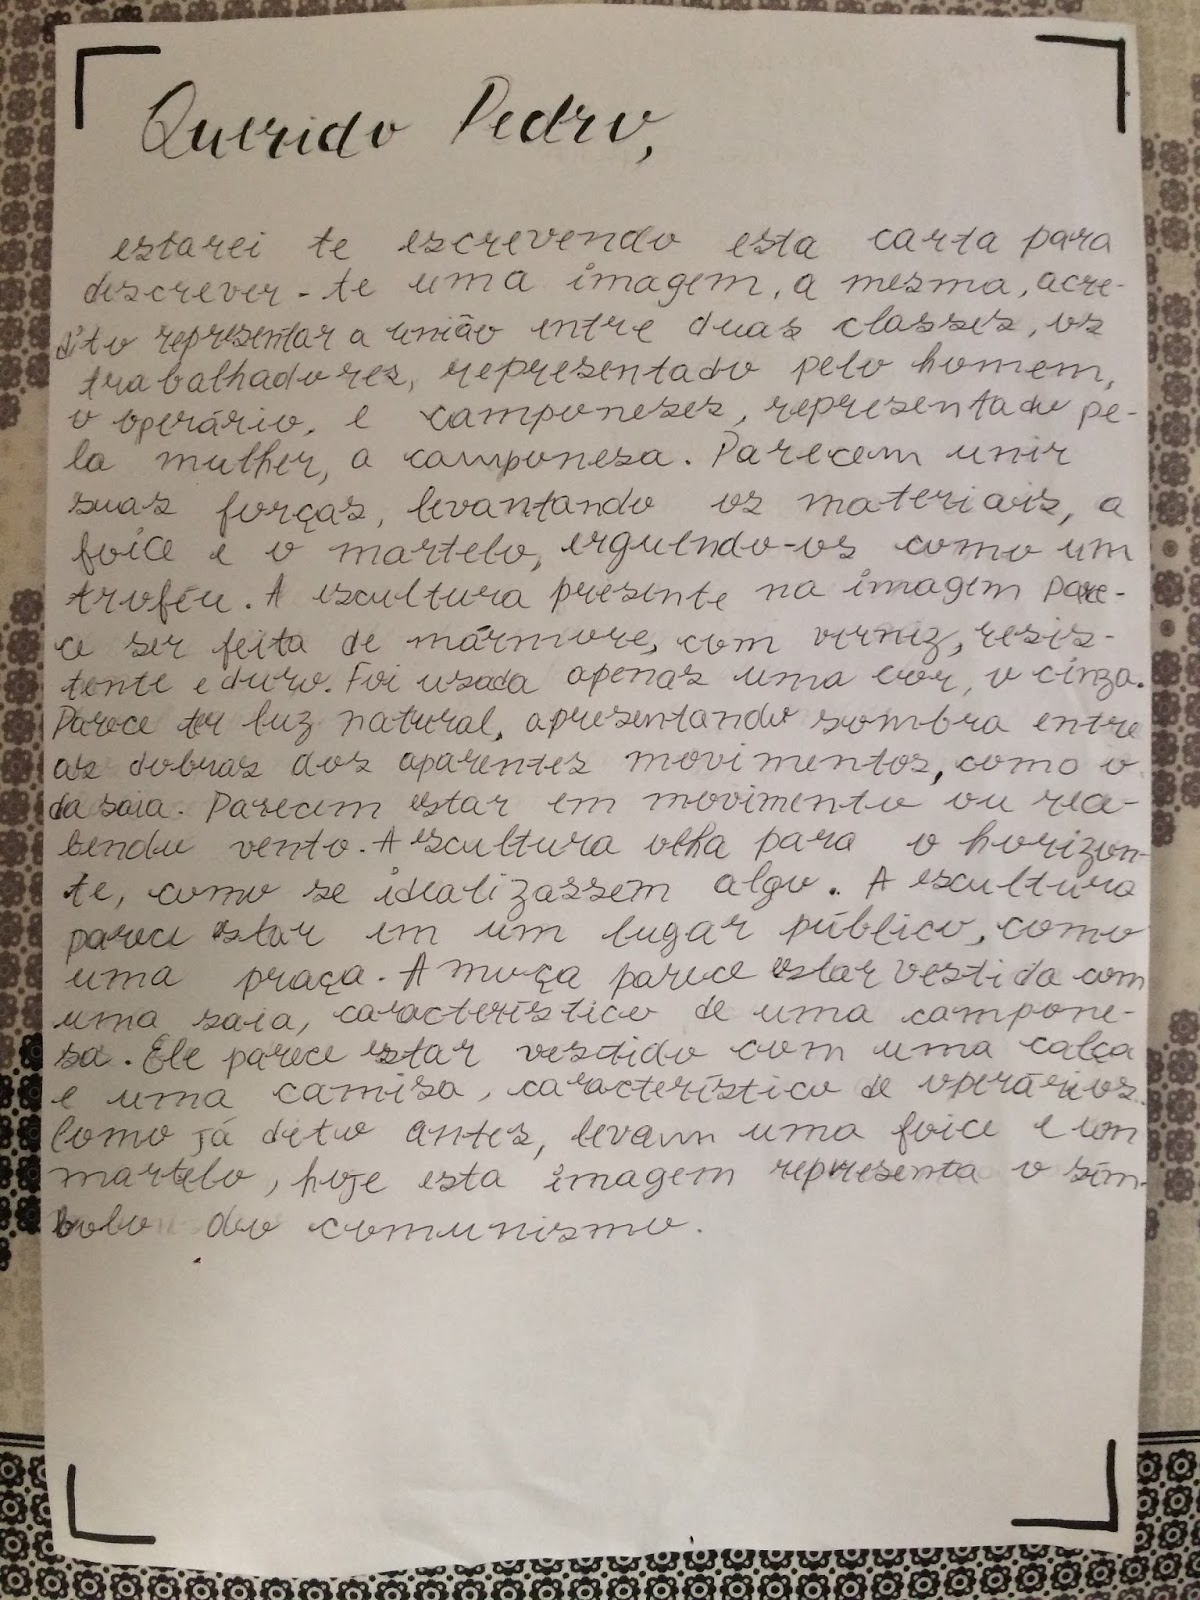 Querido Pedro,
estarei te escrevendo esta carta para
descrever-te uma imagem, a mesma, acre-
dito representar a união entre duas classes, os
trabalhadores, representado pelo homem,
o operário, e camponeses, representado pe-
la mulher, a camponesa. Parecem unir
suas forças, levantando os materiais, a
foice e o martelo, erguendo-os como um
troféu. A escultura presente na imagem pare-
ce ser feita de mármore, com verniz, resis-
tente e duro. Foi usada apenas uma cor, o cinza.
Parece ter luz natural, apresentando sombra entre
as dobras dos aparentes movimentos, como o
da saia. Parecem estar em movimento ou rece-
bendo vento. A escultura olha para o horizon-
te, como se idealizassem algo. A escultura
parece estar em um lugar público, como
uma praça. A moça parece estar vestida com
uma saia, característico de uma campone-
sa. Ele parece estar vestido com uma calça
e uma camisa, característico de operários.
Como já dito antes, levam uma foice e um
martelo, hoje esta imagem representa o sím-
bolo do comunismo.